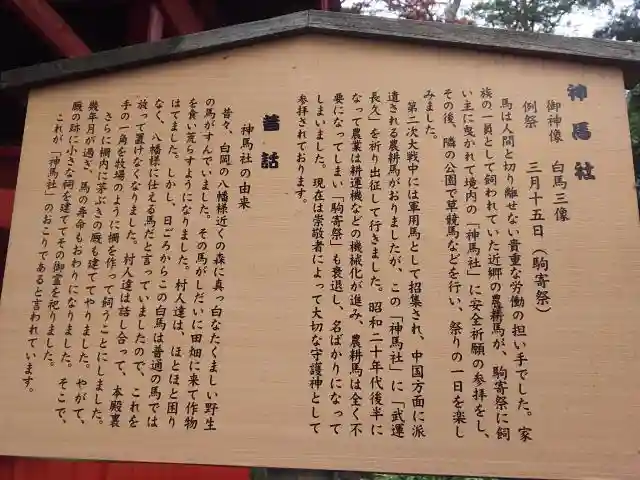 神馬社
御神像　白馬三像
例祭　三月十五日（駒寄祭）
馬は人間と切り離せない貴重な労働の担い手でした。家
族の一員として飼われていた近郷の農耕馬が、駒寄祭に飼
い主に曳かれて境内の「神馬社」に安全祈願の参拝をし、
その後、隣の公園で草競馬などを行い、祭りの一日を楽し
みました。
第二次大戦中には軍用馬として招集され、中国方面に派
遣される農耕馬がおりましたが、この「神馬社」に「武運
長久」を祈り出征して行きました。昭和二十年代後半に
なって農業は耕運機などの機械化が進み、農耕馬は全く不
要になってしまい「駒寄祭」も衰退し、名ばかりになって
しまいました。現在は崇敬者によって大切な守護神として
参拝されております。
昔話
神馬社の由来
昔々、白岡の八幡様近くの森に真っ白なたくましい野生
の馬がすんでいました。その馬がしだいに田畑に来て作物
を食い荒らすようになりました。村人達は、ほとほと困り
はてました。しかし、日ごろからこの白馬は普通の馬では
なく、八幡様に仕える馬だと言っていましたので、これを
放って置けなくなりました。村人達は話し合って、本殿裏
手の一角を牧場のように柵を作って飼うことにしました。
さらに柵内に茅ぶきの厩も建ててやりました。やがて、
幾年月が過ぎ、馬の寿命もおわりになりました。そこで、
厩の跡に小さな祠を建ててその御霊を祀りました。
これが「神馬社」のおこりであると言われています。